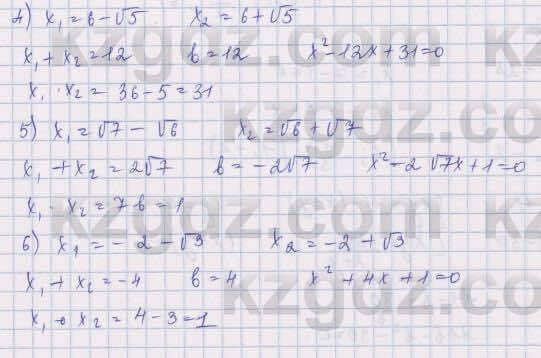 4) x₁ = 6 - √5    x₂ = 6 + √5
x₁ + x₂ = 12    b = 12    x² - 12x + 31 = 0
x₁ · x₂ = 36 - 5 = 31
5) x₁ = √7 - √6    x₂ = √6 + √7
x₁ + x₂ = 2√7    b = -2√7    x² - 2√7x + 1 = 0
x₁ · x₂ = 7 6 = 1
6) x₁ = - 2 - √3    x₂ = -2 + √3
x₁ + x₂ = -4    b = 4    x² + 4x + 1 = 0
x₁ · x₂ = 4 - 3 = 1
kzgdz.com
kzgdz.com
kzgdz.com